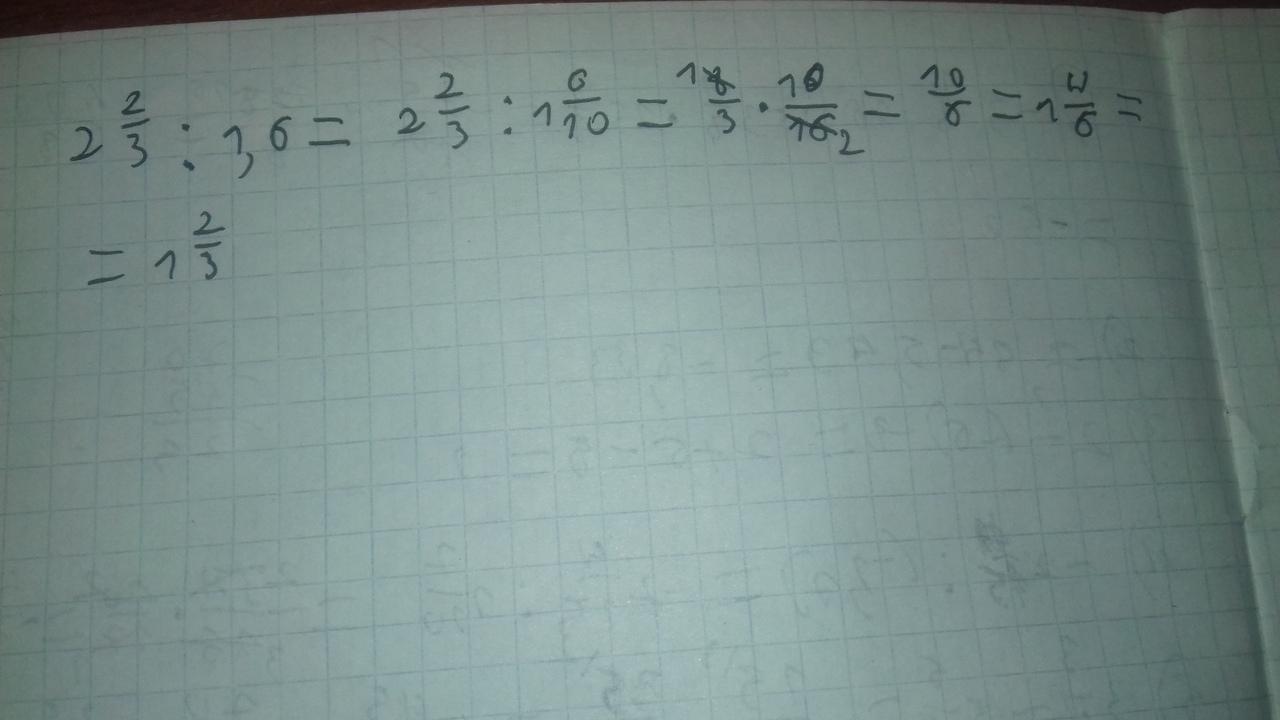 2 2/3 : 1,6 = 2 2/3 : 1 6/10 = 1 8/3 · 10/16 2 = 10/6 = 1 4/6 =
= 1 2/3